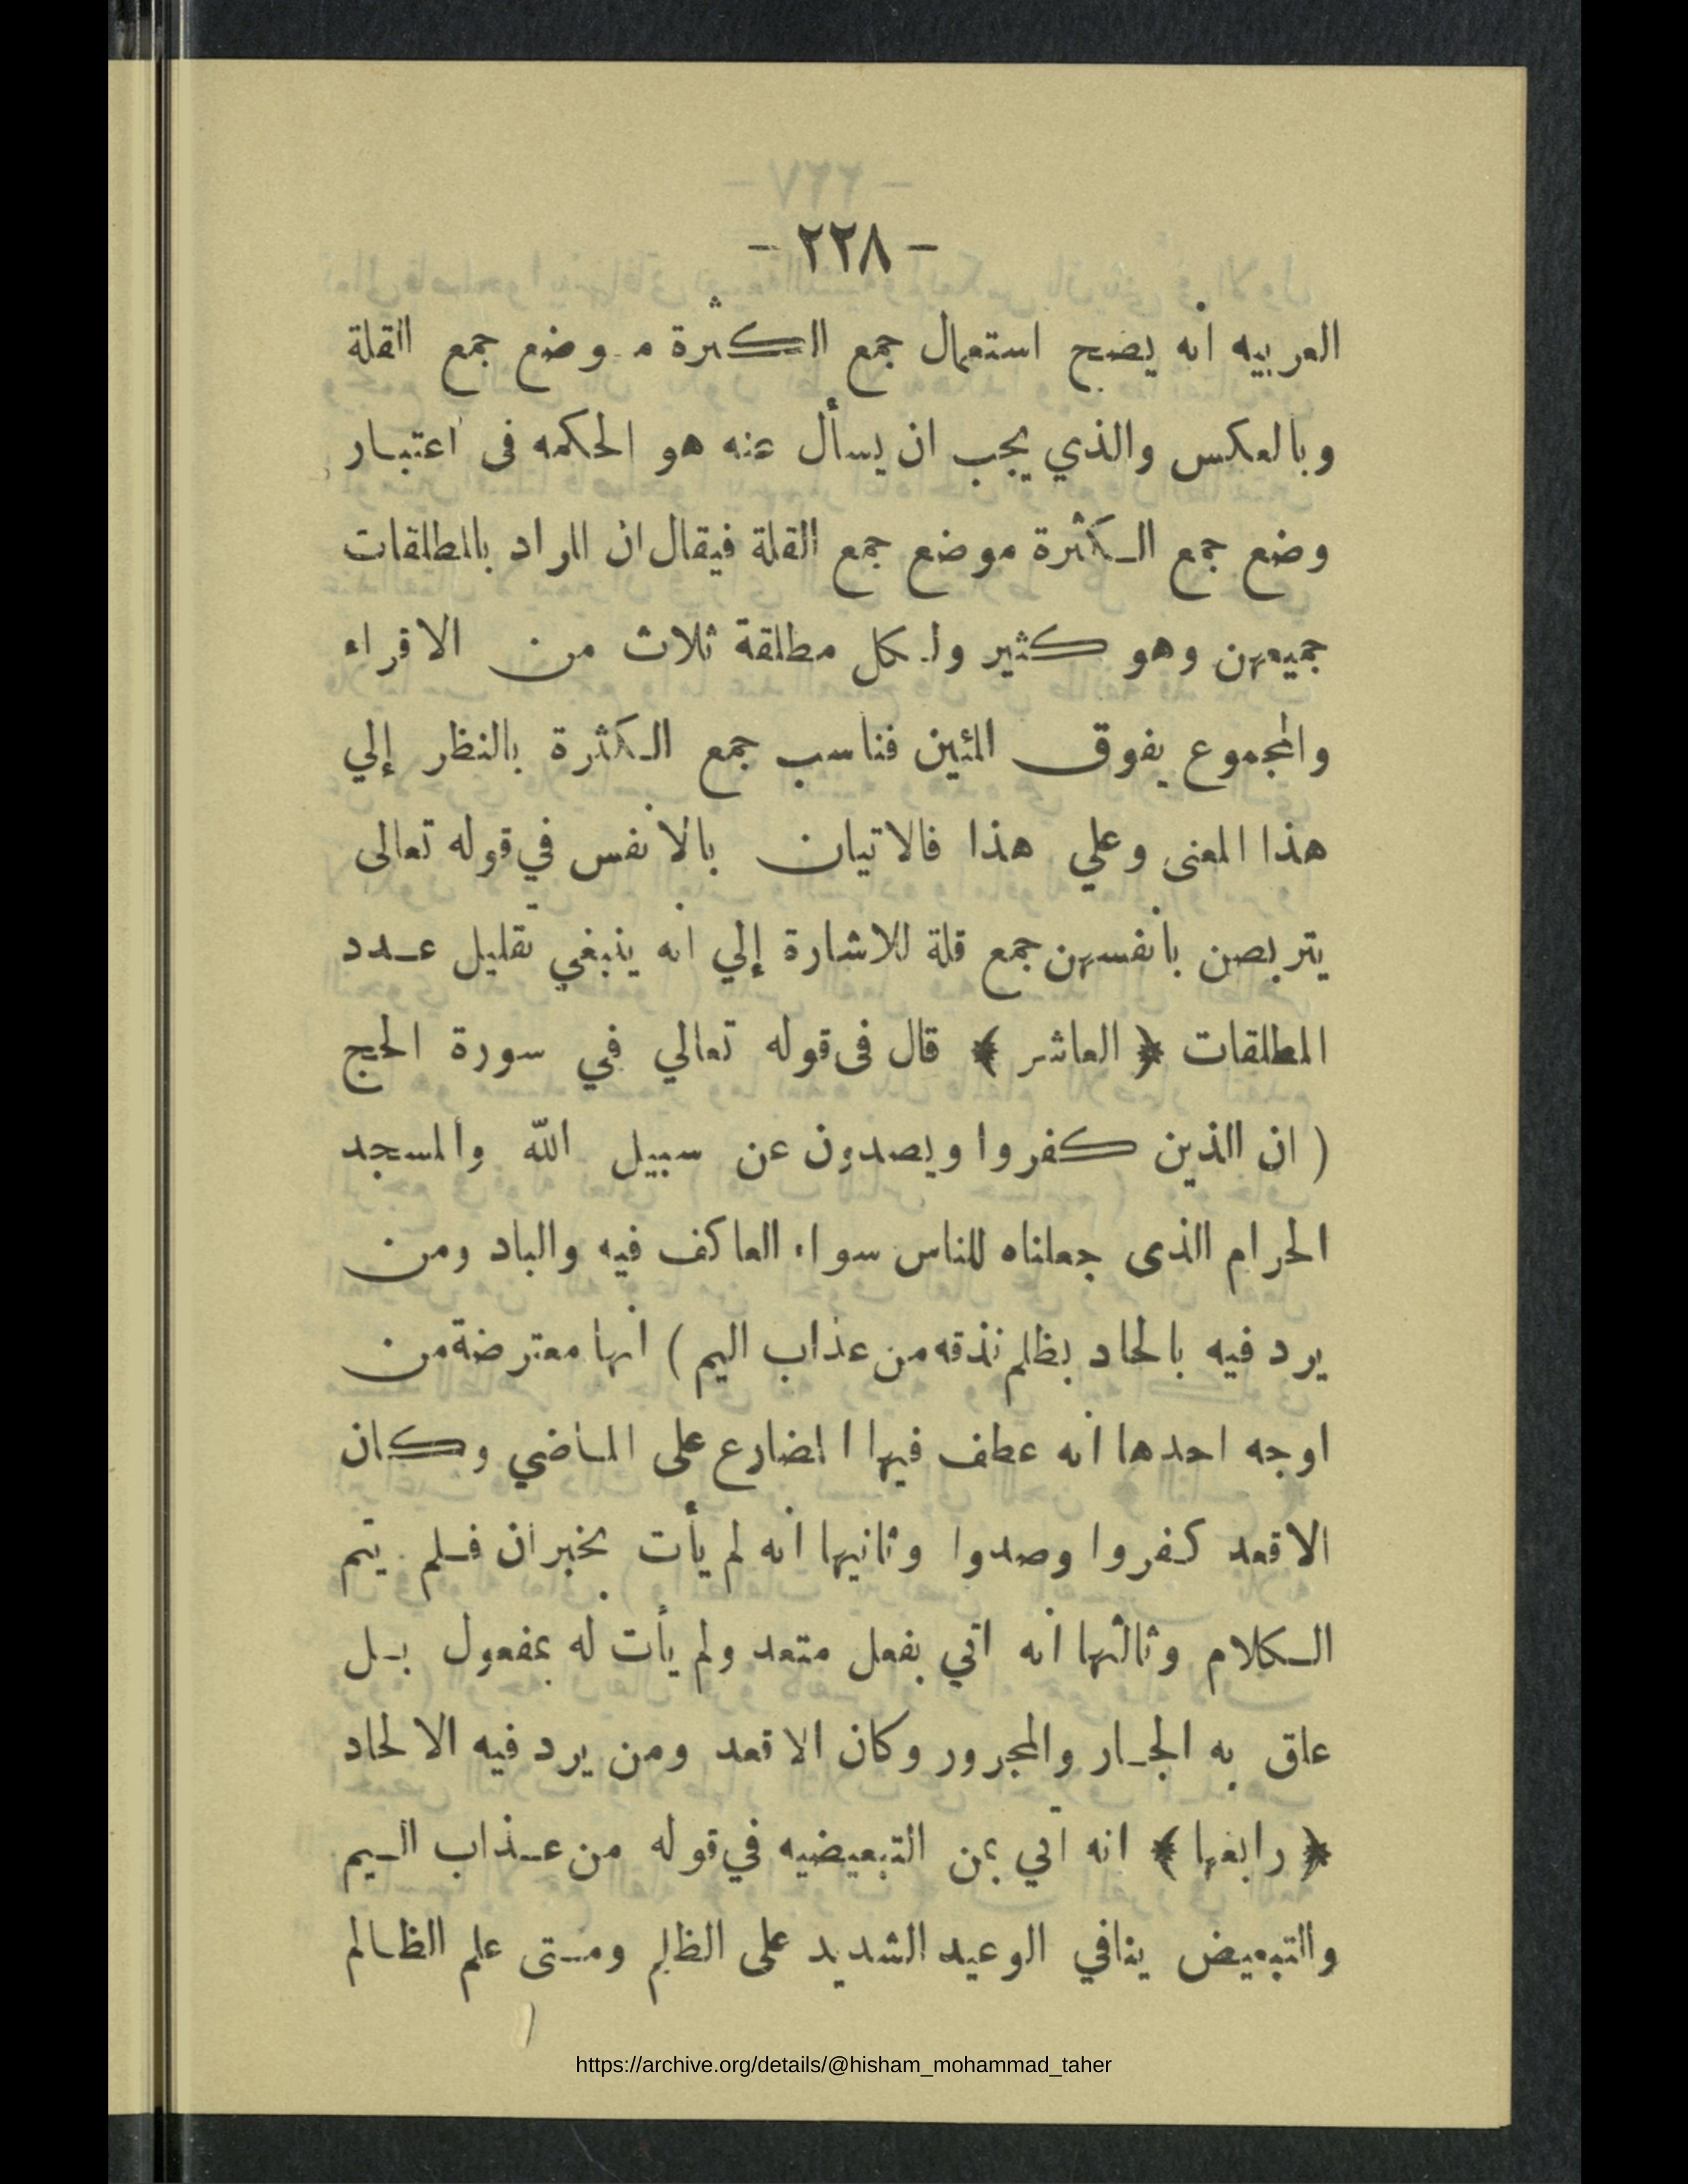 - ٢٢٨ -
العربيه انه يصح استعمال جمع الكثرة موضع جمع القلة
وبالعكس والذي يجب ان يسأل عنه هو الحكمه فى اعتبار
وضع جمع الكثرة موضع جمع القلة فيقال ان المراد بالمطلقات
جميعهن وهو كثير ولكل مطلقة ثلاث من الاقراء
والمجموع يفوق المئين فناسب جمع الكثرة بالنظر إلي
هذا المعنى وعلي هذا فالاتيان بالانفس في قوله تعالى
يتربصن بانفسهن جمع قلة للاشارة إلي انه ينبغي تقليل عدد
المطلقات ﴿ العاشر ﴾ قال فى قوله تعالي في سورة الحج
( ان الذين كفروا ويصدون عن سبيل الله والمسجد
الحرام الذى جعلناه للناس سواء العاكف فيه والباد ومن
يرد فيه بالحاد بظلم نذقه من عذاب اليم ) انها معترضة من
اوجه احدها انه عطف فيها المضارع على الماضي وكان
الاقعد كفروا وصدوا وثانيها انه لم يأت بخبر ان فلم يتم
الكلام وثالثها انه اتي بفعل متعد ولم يأت له بمفعول بل
علق به الجار والمجرور وكان الاقعد ومن يرد فيه الالحاد
﴿ رابعها ﴾ انه اتي بمن التبعيضيه في قوله من عذاب اليم
والتبعيض ينافي الوعيد الشديد على الظلم ومتى علم الظالم
https://archive.org/details/@hisham_mohammad_taher